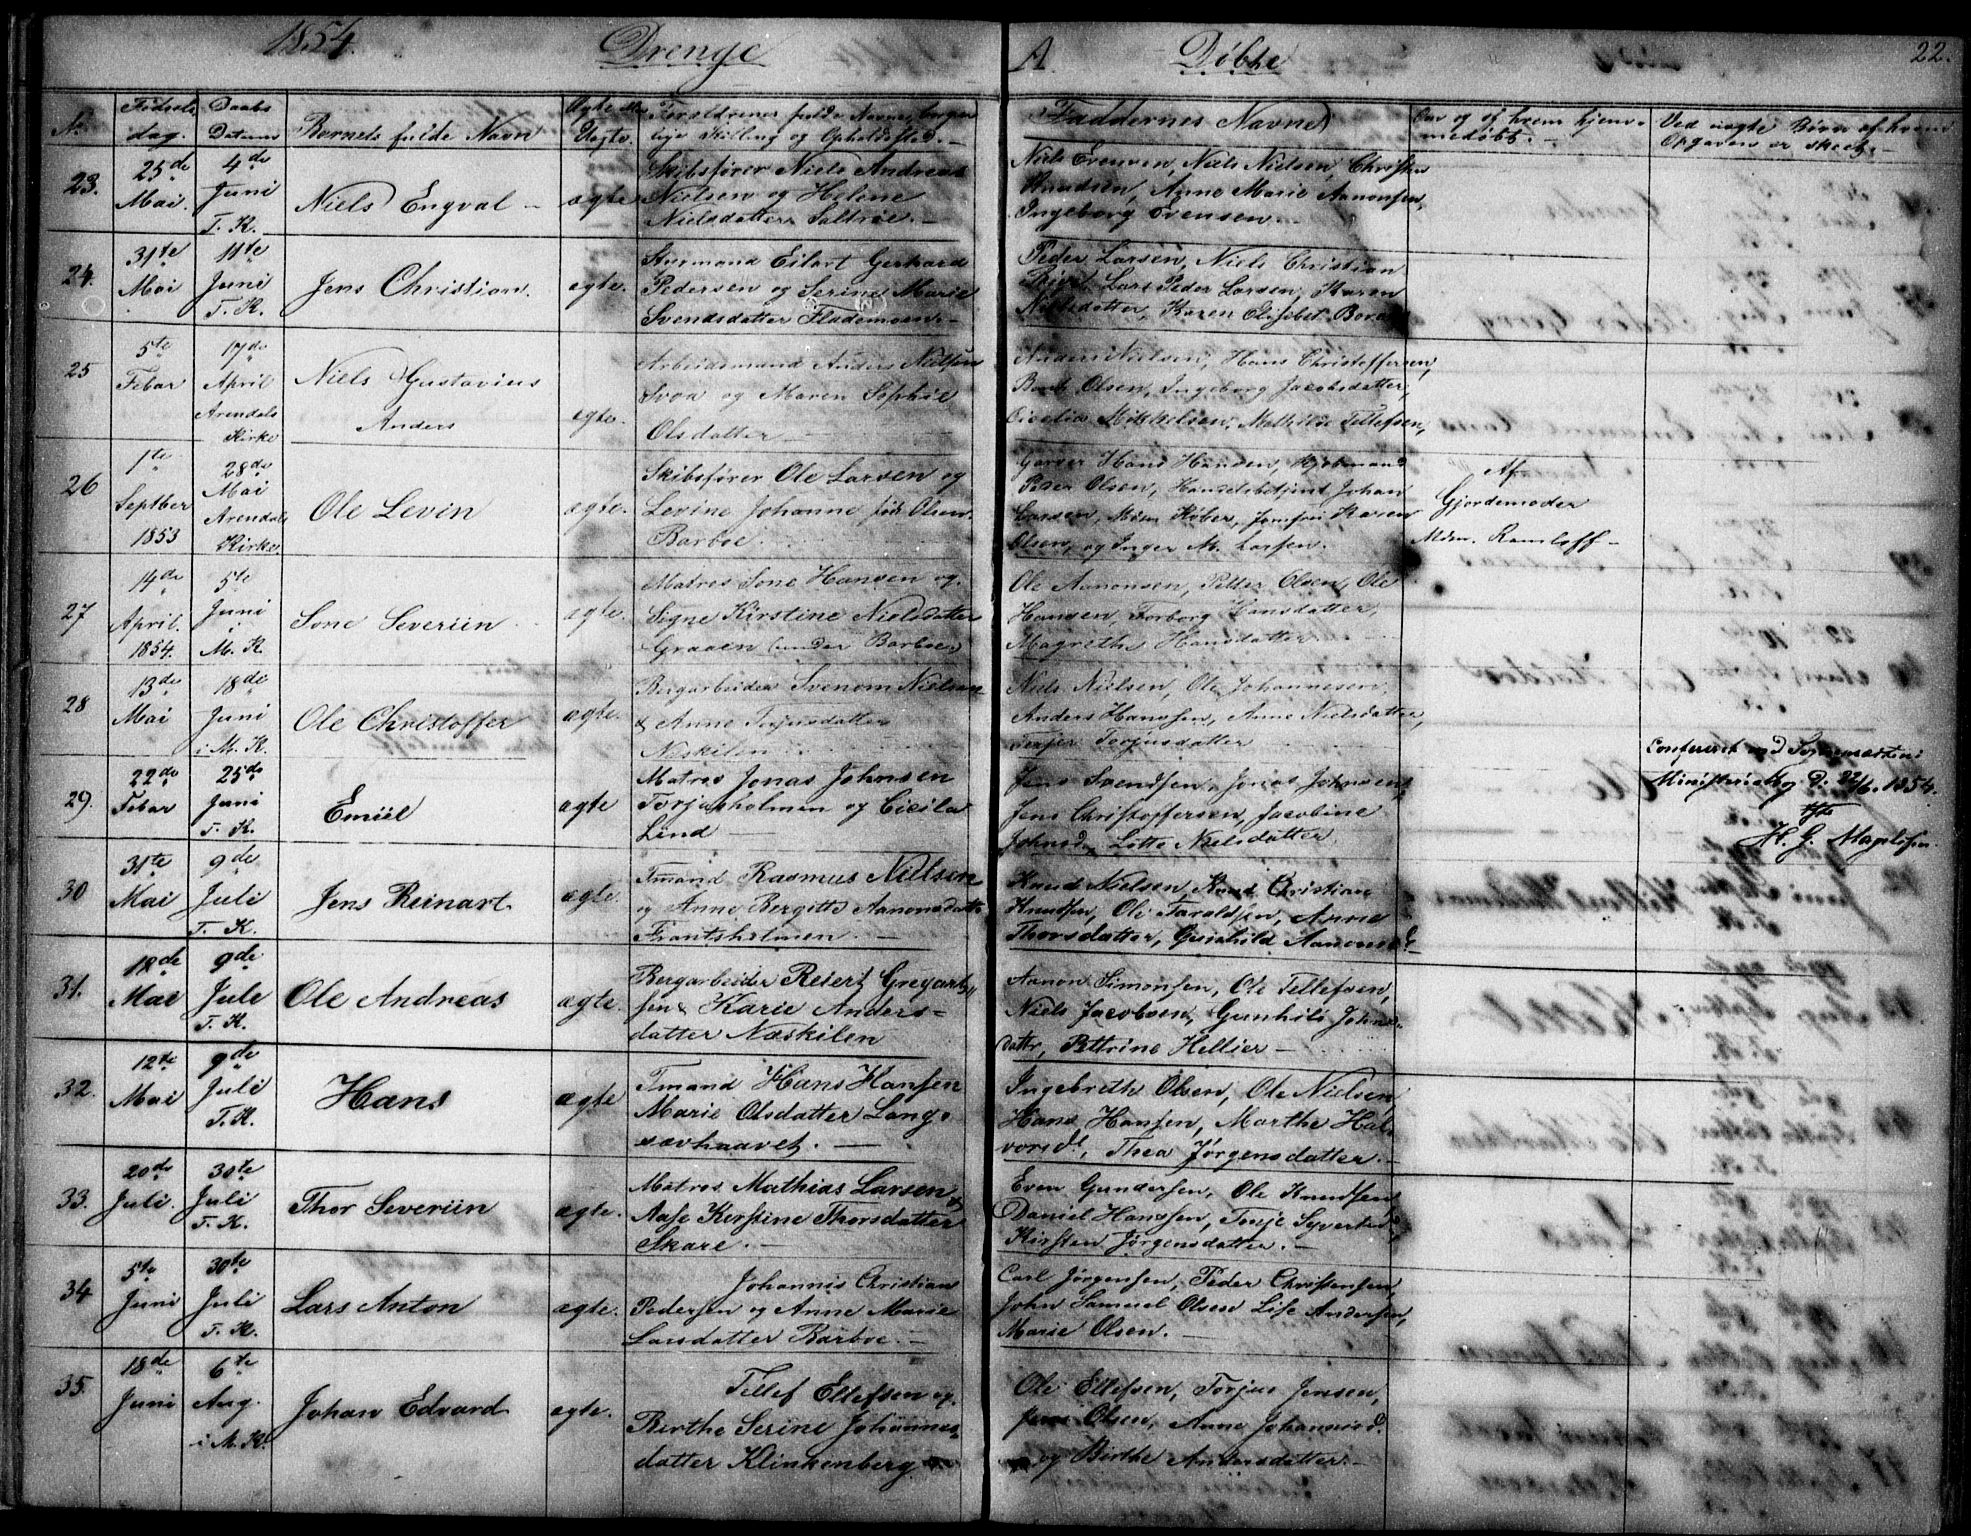 1854.
Drenge
A.
Døbte
22.
N.
Fødsels
dag.
Daabs
Datum
Barnets fulde Navn
Ægte eller
Uægte.
Forældrenes fulde Navne, borger
lige Stilling og Opholdssted.
Faddernes Navne
Om og af hvem hjem
medøbt. –
Ved uægte Børn af hvem
Opgaven er skeet. –
23.
25de
Mai.
4de
Juni
T. K.
Niels Engval –
ægte
Skibsfører Niels Andreas
Nielsen og Helene
Nielsdatter Saltrøe. –
Niels Evensen, Niels Nielsen, Christen
Knudsen, Anne Marie Aanonsen,
Ingeborg Evensen.
24.
31te
Mai
11te
Juni
T. K.
Jens Christian.
ægte.
Styrmand Eilert Gerhard
Pedersen og Serine Marie
Svendsdatter Flademoen. –
Peder Larsen, Niels Christian
Lars Peder Larsen, Karen
Nielsdatter, Karen Elisabet
25
5te
Febar
17de
April
Arendals
Kirke
Niels Gustavius
Anders
ægte.
Arbeidsmand Anders Nielsen
Svoa og Maren Sophie
Olsdatter –
Anders Nielsen, Hans Christoffersen,
Bent Olsen, Ingeborg Jacobsdatter,
Cicelia Mikkelsen, Mathilde Tellefsen,
26
1te
Septber
1853
28de
Mai
Arendals
Kirke
Ole Levin
ægte.
Skibsfører Ole Larsen og
Levine Johanne født Olsen.
Barboe.
Garver Hans Hansen, Kjøbmand
Peder Olsen, Handelsbetjent Johan
Larsen, Mdm Køber, Jomfru Karen
Olsen, og Inger M. Larsen.
Af
Gjordemoder
Mdm. Ramloff –
27
14de
April.
1854.
5te
Juni
i
M. K.
Sone Severiin
ægte.
Matros Sone Hansen og
Signe Kirstine Nielsdatter
Graaen (under Barboe)
Ole Aanonsen, Petter Olsen, Ole
Hansen, Torborg Hansdatter,
Magrethe Hansdatter
28
13de
Mai
18de
Juni
i M. K.
Ole Christoffer
ægte.
Bergarbeider Svenom Nielsen
& Anne Terjusdatter
Neskilen
Niels Nielsen, Ole Johannesen,
Anders Hanssen, Anne Nielsdatter,
Terjer Terjusdatter
29.
22de
Febar
25de
Juni
T. K.
Emiil
ægte
Matros Jonas Johnsen
Torjusholmen og Cicilia
Lind –
Jens Svendsen, Jonas Johnsen,
Jens Christoffersen, Jacobine
Johnsd, Lotte Nielsdatter.
Confereret med Sognepræstens
Ministerialbog d. 22/6. 1854.
H. G. Magelssen.
30
31te
Mai
9de
Juli
T. K.
Jens Reinart.
ægte.
Tmand Rasmus Nielsen
og Anne Bergitte Aanonsdatter
Frantsholmen. –
Knud Nielsen, Knud Christian
Knudsen, Ole Taraldsen, Anne
Thorsdatter, Gunhild Aanonsd
31.
12de
Mai
9de
Jule
T. K.
Ole Andreas
ægte.
Bergarbeider Reiert Gregert
sen & Karie Anders-
datter Næskilen
Aanon Simonsen, Ole Tellefsen,
Niels Jacobsen, Gunhild Johns
datter, Pettrine Hellier –
32.
12te
Mai
9de
Juli
T. K.
Hans
ægte
Tmand Hans Hansen
Marie Olsdatter Lang-
sævhaavet. –
Ingebreth Olsen, Ole Nielsen,
Hans Hansen, Marthe Hal-
vorsd., Thea Jørgensdatter. –
33.
20de
Juli.
30te
Juli
T. K.
Thor Severiin
ægte.
Matros Mathias Larsen &
Aase Kirstine Thorsdatter
Skare. –
Even Gundersen, Ole Knudsen,
Daniel Hanssen, Terje Syvertsd,
Kirsten Jørgensdatter. –
34
5te
Juni
30te
Juli
T. K.
Lars Anton
ægte.
Johannis Christian
Pedersen og Anne Marie
Larsdatter Barboe. –
Carl Jørgensen, Peder Christensen,
John Samuel Olsen Lise Andersen,
Marie Olsen. –
35.
18de
Juni
6te
Aug.
i M. K.
Johan Edvard
ægte.
Tellef Ellefsen og
Birthe Serine Johannes-
datter Klinkenberg
Ole Ellefsen, Torjus Jensen,
Jens Olsen, Anne Johannesd.
og Birthe Andersdatter. –